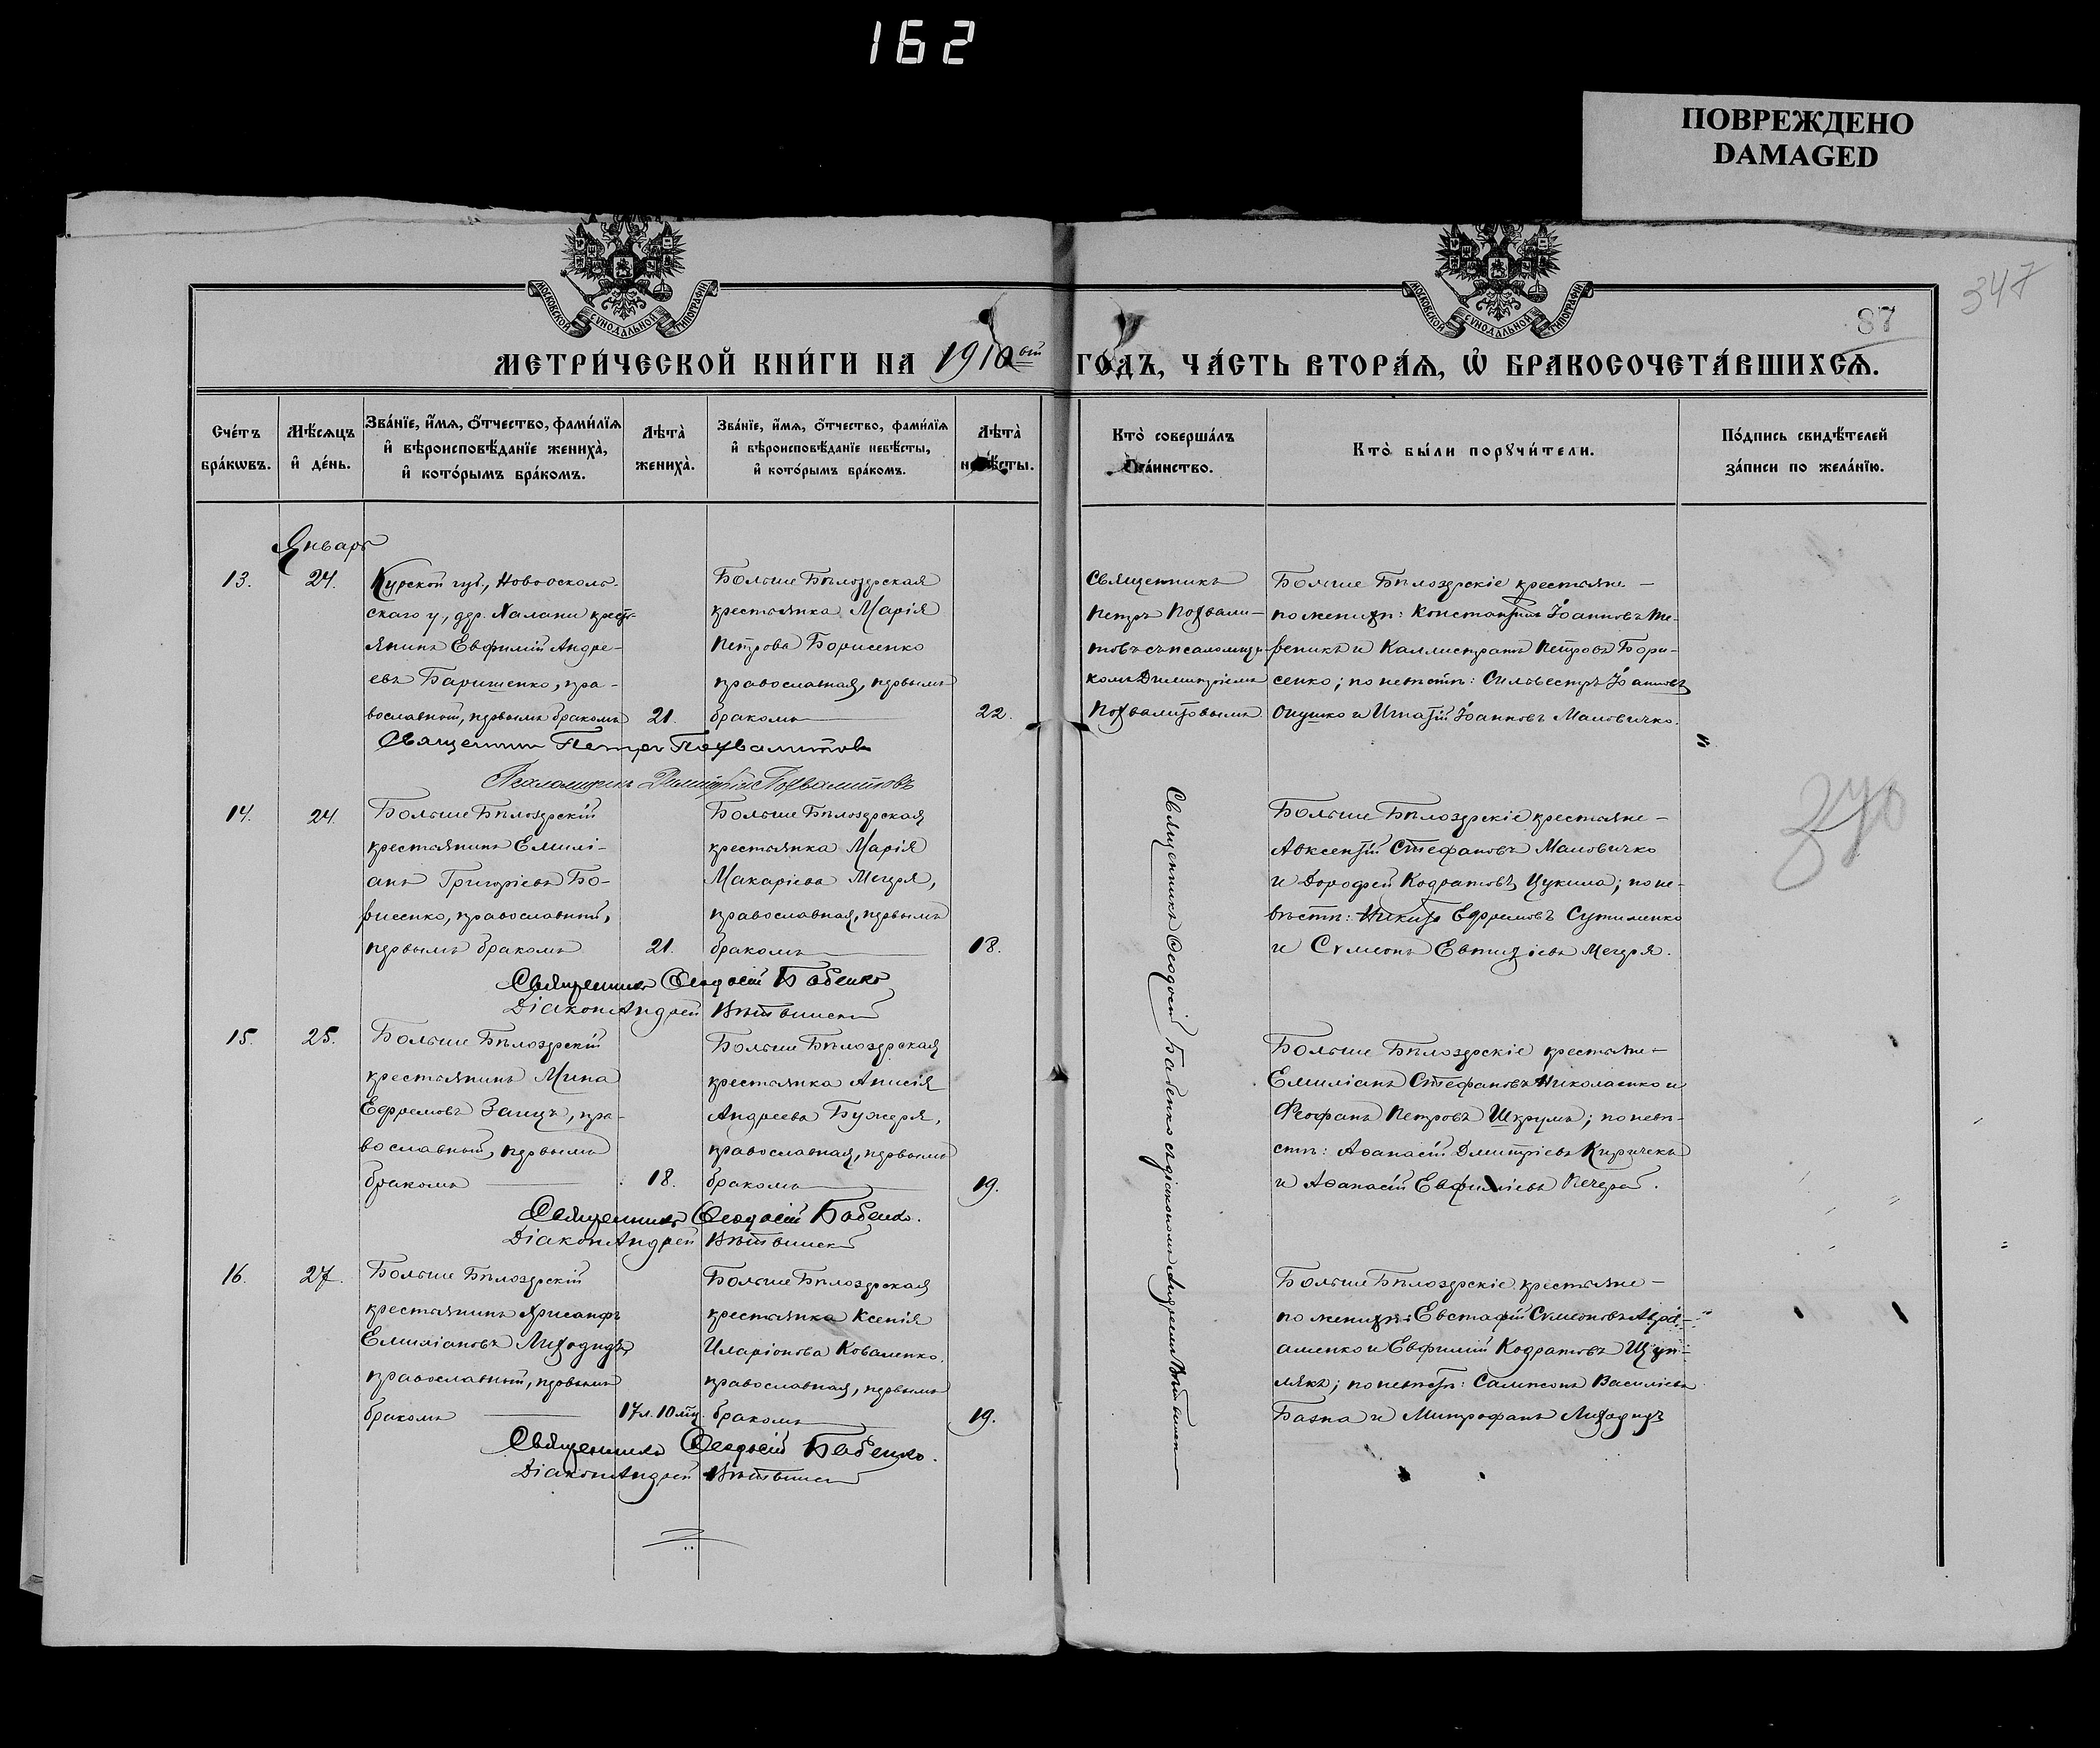 162
ПОВРЕЖДЕНО
DAMAGED
347
87
МОСКОВСКОЙ СУНОДАЛЬНОЙ ТИПОГРАФІИ
МОСКОВСКОЙ СУНОДАЛЬНОЙ ТИПОГРАФІИ
МЕТРИ́ЧЕСКОЙ КНИ́ГИ НА 1910ый ГО́ДЪ, ЧА́СТЬ ВТОРА́Ѧ, Ѡ҆ БРАКОСОЧЕТА́ВШИХСѦ.
Сче́тъ бра́кѡвъ.
Мѣ́сѧцъ и҆ де́нь.
Зва́нїе, и҆́мѧ, ѻ҆́тчество, фами́лїѧ
и҆ вѣроисповѣ́данїе жениха̀,
и҆ кото́рымъ бра́комъ.
Лѣта̀ жениха̀.
Зва́нїе, и҆́мѧ, ѻ҆́тчество, фами́лїѧ
и҆ вѣроисповѣ́данїе невѣ́сты,
и҆ кото́рымъ бра́комъ.
Лѣта̀ невѣ́сты.
Кто̀ соверша́лъ
та́инство.
Кто̀ бы́ли порꙋчи́тели.
По́дпись свидѣ́телей
за́писи по жела́нїю.
Январь
13.
24.
Курской губ., Новоосколь-
скаго у., дер. Халани крест-
янинъ Евфимій Андре-
евъ Баришенко, пра-
вославный, первымъ бракомъ
21.
Больше Бѣлозерская
крестьянка Марія
Петрова Борисенко
православная, первымъ
бракомъ
22.
Священникъ
Петръ Похвали-
товъ съ псаломщи-
комъ Димитріемъ
Похвалитовымъ
Больше Бѣлозерскіе крестьяне —
по женихѣ: Константинъ Іоанновъ
и Каллистратъ Петровъ Бори-
сенко; по невѣстѣ: Сильвестръ Іоанновъ
Онушко и Игнатій Іоанновъ Маловичко.
Священникъ Петръ Похвалитовъ
Псаломщикъ Димитрій Похвалитовъ
14.
24.
Больше Бѣлозерскій
крестьянинъ Емилі-
анъ Григоріевъ Бо-
рисенко, православный,
первымъ бракомъ
21.
Больше Бѣлозерская
крестьянка Марія
Макаріева Мегеря,
православная, первымъ
бракомъ
18.
Священникъ Ѳеодосій Бабенко съ діакономъ Андреемъ
Больше Бѣлозерскіе крестьяне —
Авксентій Стефановъ Маловичко
и Дорофей Кодратовъ Цукила; по не-
вѣстѣ: Никита Ефремовъ Сутименко
и Сѵмеонъ Евтихіевъ Мегеря.
370
Священникъ Ѳеодосій Бабенко
Діаконъ Андрей
15.
25.
Больше Бѣлозерскій
крестьянинъ Мина
Ефремовъ Заецъ, пра-
вославный, первымъ
бракомъ
18.
Больше Бѣлозерская
крестьянка Анисія
Андреева Бужеря,
православная, первымъ
бракомъ
19.
Больше Бѣлозерскіе крестьяне —
Емиліанъ Стефановъ Николаенко и
Ѳеофанъ Петровъ Шкрумъ; по невѣ-
стѣ: Аѳанасій Димитріевъ Киричекъ
и Аѳанасій Евфиміевъ Кечеря.
Священникъ Ѳеодосій Бабенко.
Діаконъ Андрей
16.
27.
Больше Бѣлозерскій
крестьянинъ Хрисанфъ
Емиліановъ Лиходидъ
православный, первымъ
бракомъ
17 л. 10 мц.
Больше Бѣлозерская
крестьянка Ксенія
Иларіонова Коваленко,
православная, первымъ
бракомъ
19.
Больше Бѣлозерскіе крестьяне —
по женихѣ: Евстафій Сѵмеоновъ Авра-
аменко и Евфимій Кодратовъ
по невѣстѣ: Сампсонъ Василіевъ
Базна и Митрофанъ Лиходидъ
Священникъ Ѳеодосій Бабенко.
Діаконъ Андрей